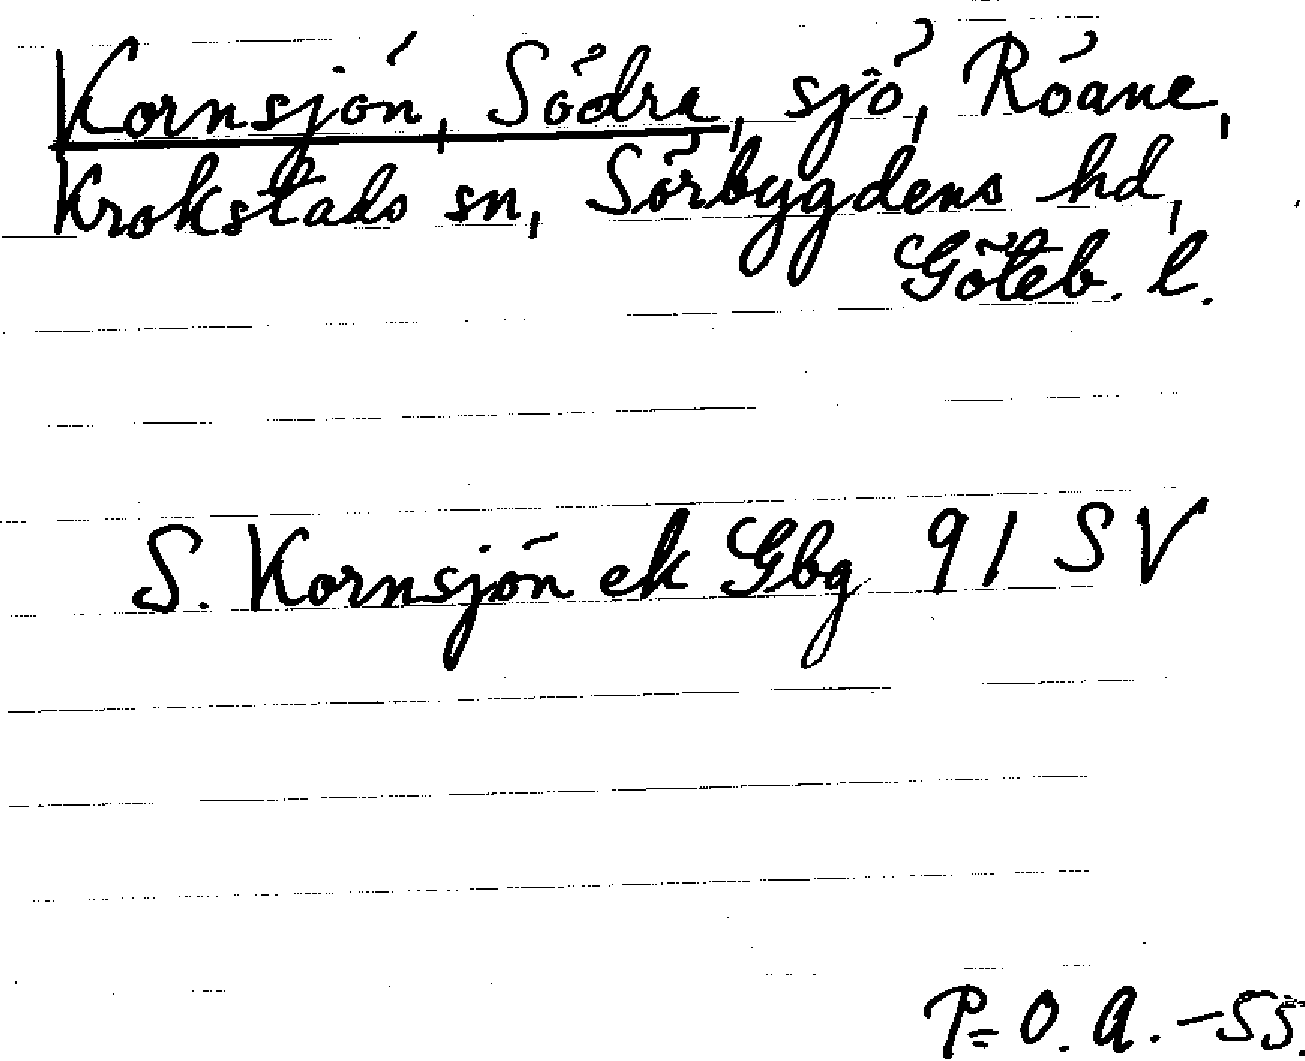 Kornsjön, Södra, sjö, Röane,
Krokstads sn, Sörbygdens hd,
Göteb. l.
S. Kornsjön ek Gbg 91 SV
P= O. A. -55.